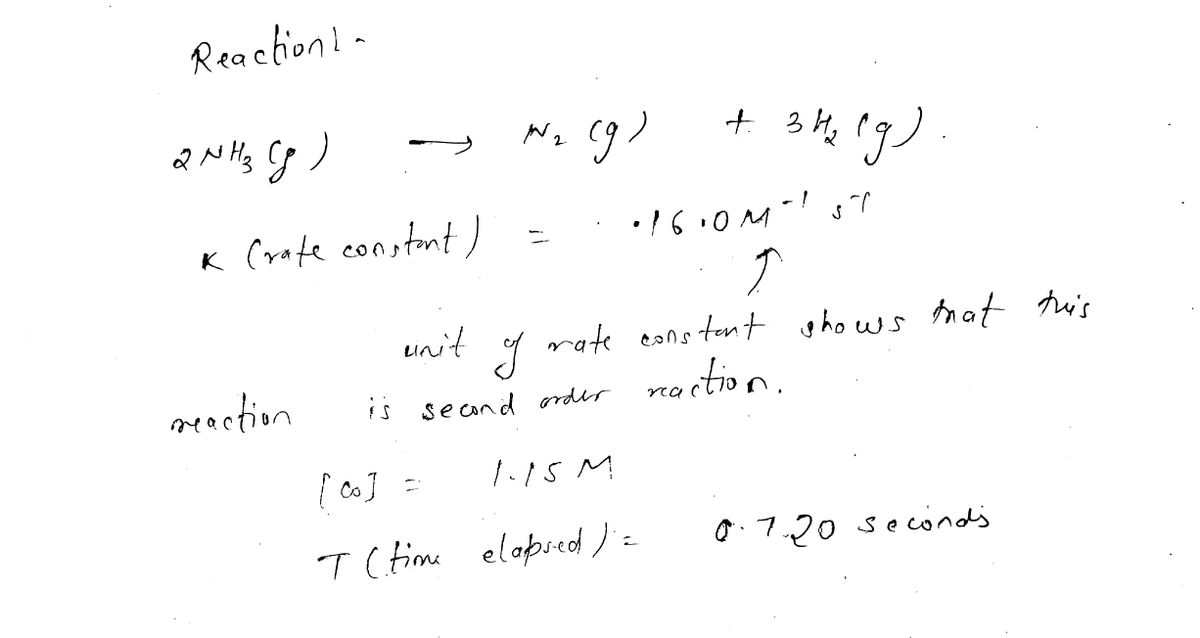 Reaction :-
2NH₃(g) → N₂(g) + 3H₂(g).
K (rate constant) = 16.0 M⁻¹ s⁻¹
↑
unit of rate constant shows that this
reaction is second order reaction.
[C₀] = 1.15 M
T (time elapsed) = 0.720 seconds